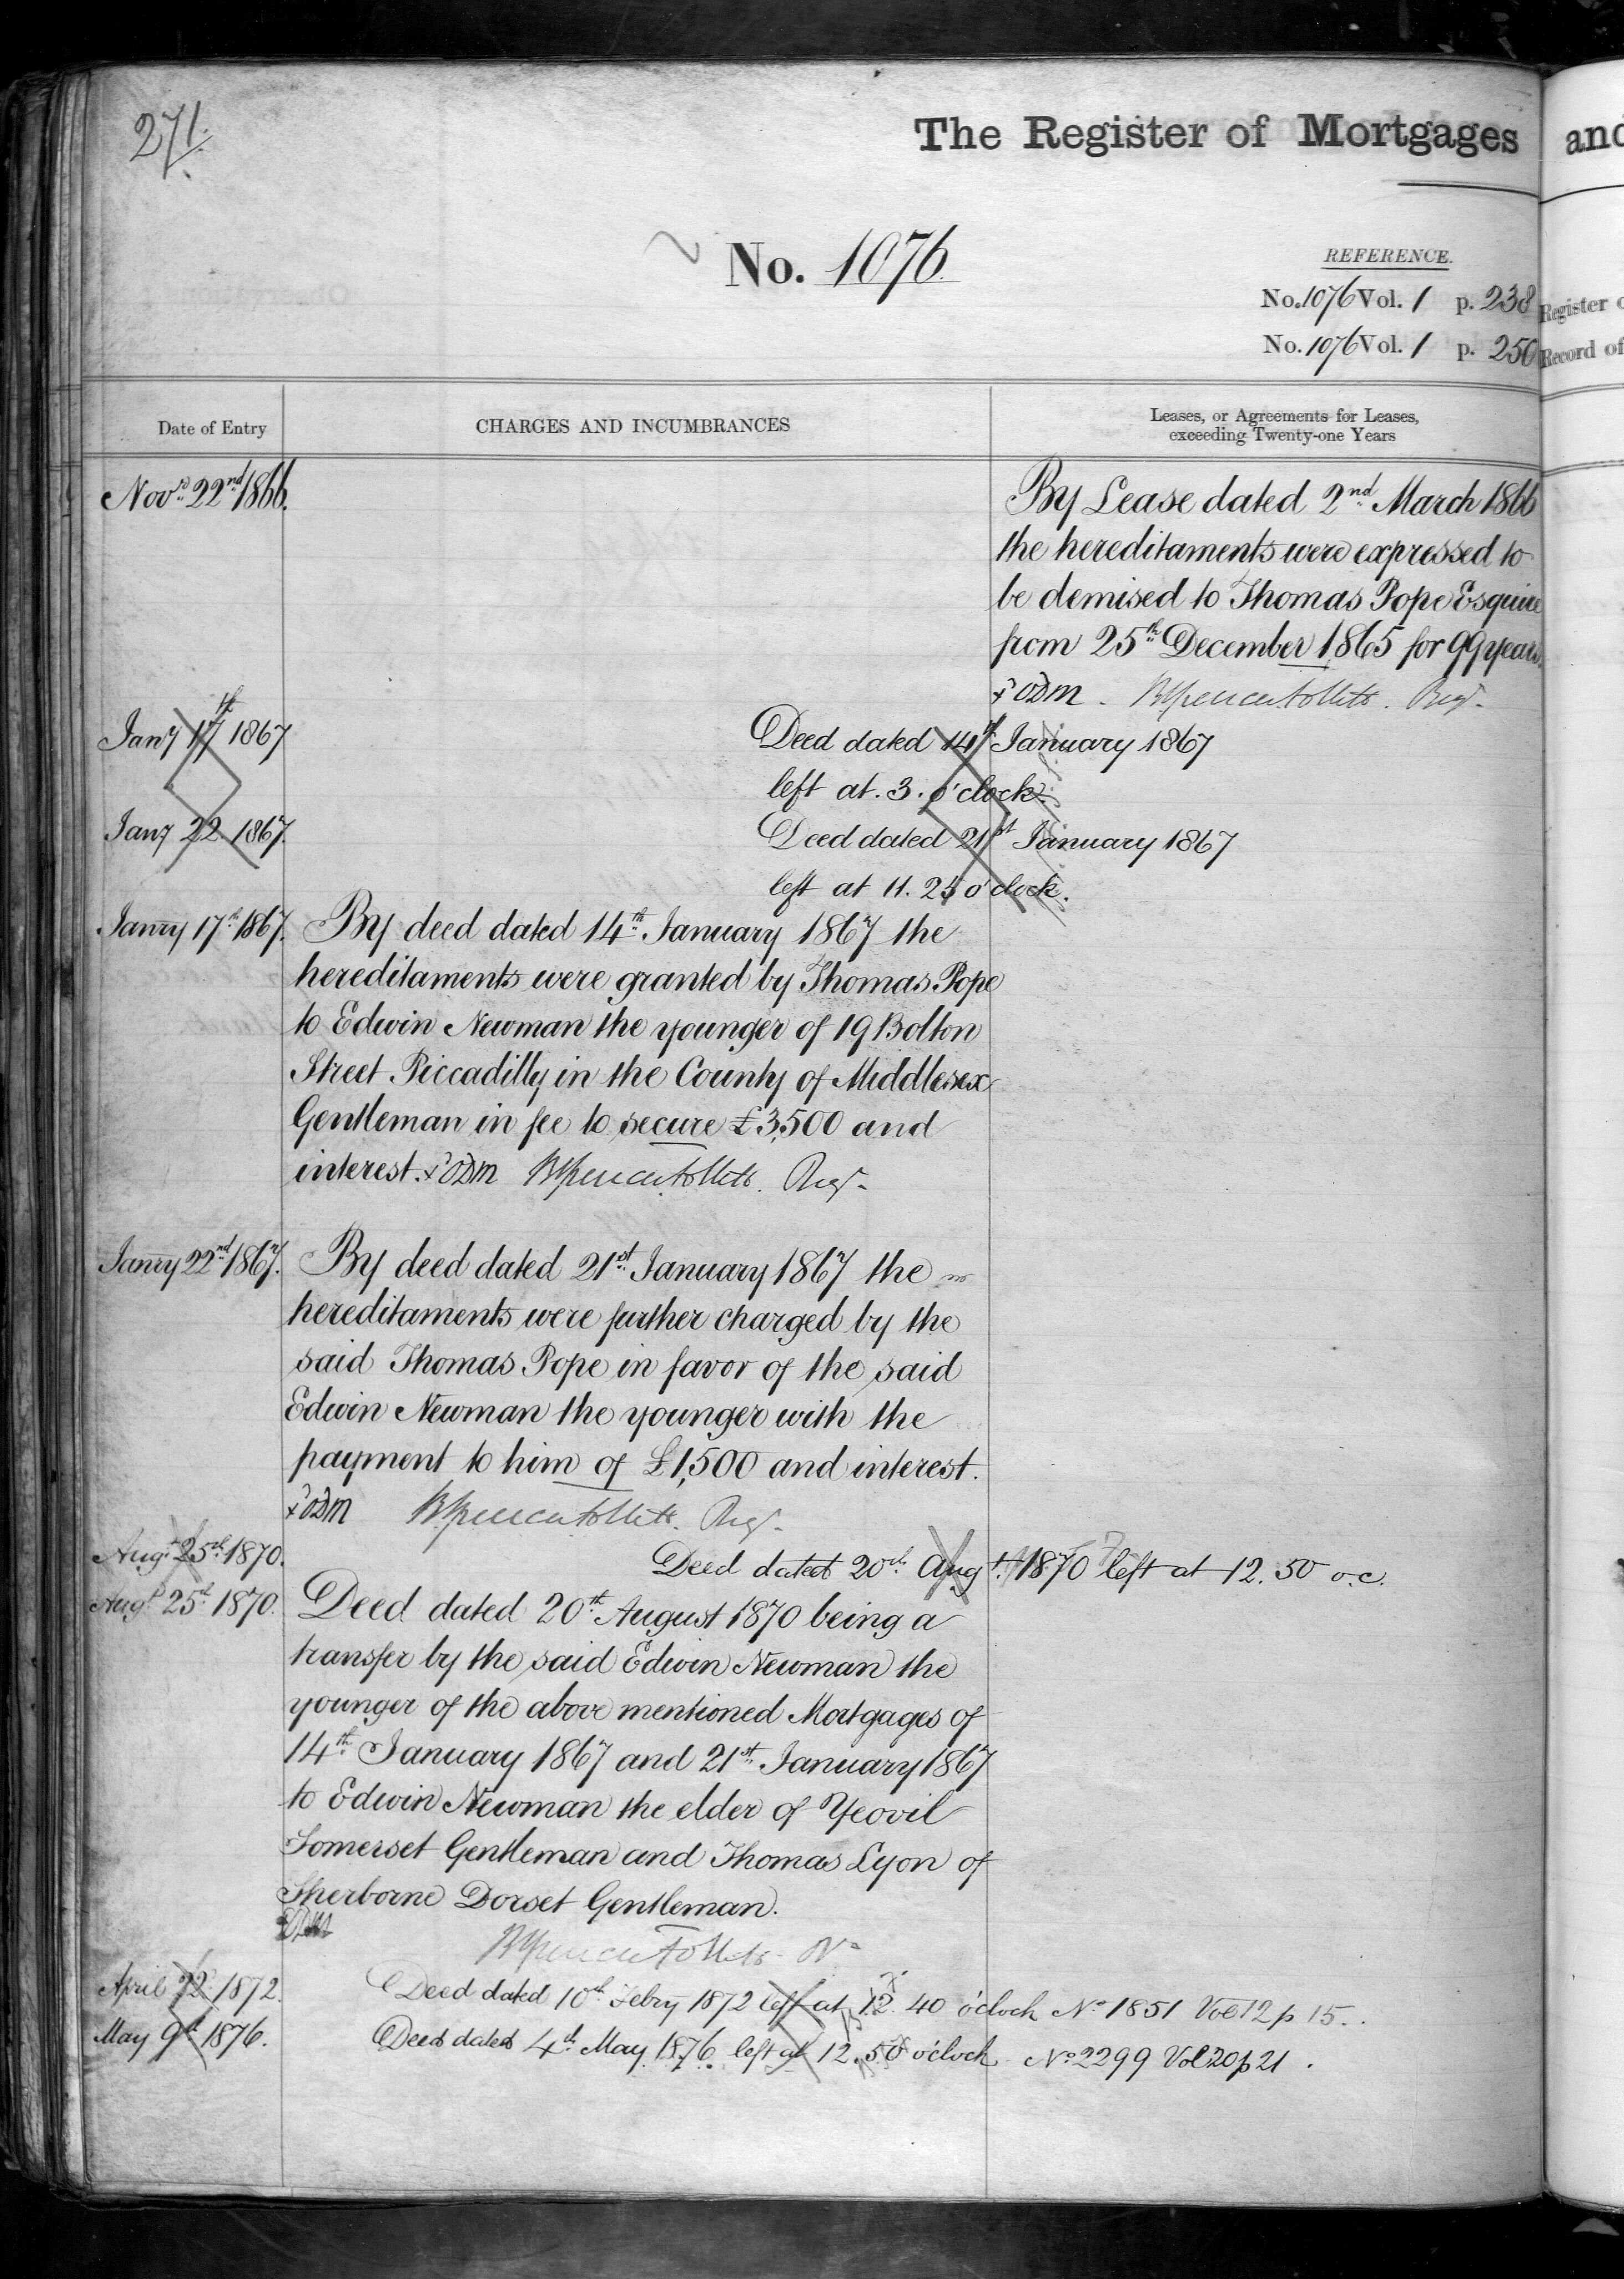 271.
The Register of Mortgages and
No. 1076
REFERENCE.
No. 1076 Vol. 1 p. 238 Register o
No. 1076 Vol. 1 p. 250 Record of
Date of Entry
CHARGES AND INCUMBRANCES
Leases, or Agreements for Leases,
exceeding Twenty-one Years
Novr. 22nd 1866.
By Lease dated 2nd March 1866
the hereditaments were expressed to
be demised to Thomas Pope Esquire
from 25th December 1865 for 99 years.
Regr.
Jany 17th 1867
Deed dated 14th January 1867
left at 3. o'clock.
Jany 22 1867.
Deed dated 21st January 1867
left at 11. 25 o'clock.
Janry 17th 1867.
By deed dated 14th January 1867 the
hereditaments were granted by Thomas Pope
to Edwin Newman the younger of 19 Bolton
Street Piccadilly in the County of Middlesex
Gentleman in fee to secure £3,500 and
interest. Regr.
Janry 22nd 1867.
By deed dated 21st January 1867 the
hereditaments were further charged by the
said Thomas Pope in favor of the said
Edwin Newman the younger with the
payment to him of £1,500 and interest.
Regr.
Augt. 25th 1870.
Deed dated 20th Augt. 1870 left at 12. 50 o.c.
Augt. 25th 1870.
Deed dated 20th August 1870 being a
transfer by the said Edwin Newman the
younger of the above mentioned Mortgages of
14th January 1867 and 21st January 1867
to Edwin Newman the elder of Yeovil
Somerset Gentleman and Thomas Lyon of
Sherborne Dorset Gentleman.
April 22d 1872.
Deed dated 10th Febry 1872 left at 12. 40 o'clock No 1851 Vol 12 p 15.
May 9th 1876.
Deed dated 4th May 1876 left at 12. 50 o'clock No 2299 Vol 20 p 21.